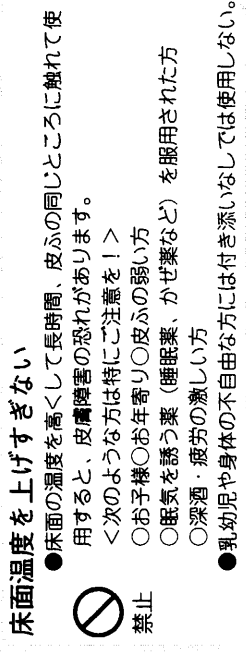 床面温度を上げすぎない
禁止
●床面の温度を高くして長時間、皮ふの同じところに触れて使
用すると、皮膚障害の恐れがあります。
＜次のような方は特にご注意を！＞
○お子様○お年寄り○皮ふの弱い方
○眠気を誘う薬（睡眠薬、かぜ薬など）を服用された方
○深酒・疲労の激しい方
●乳幼児や身体の不自由な方には付き添いなしでは使用しない。